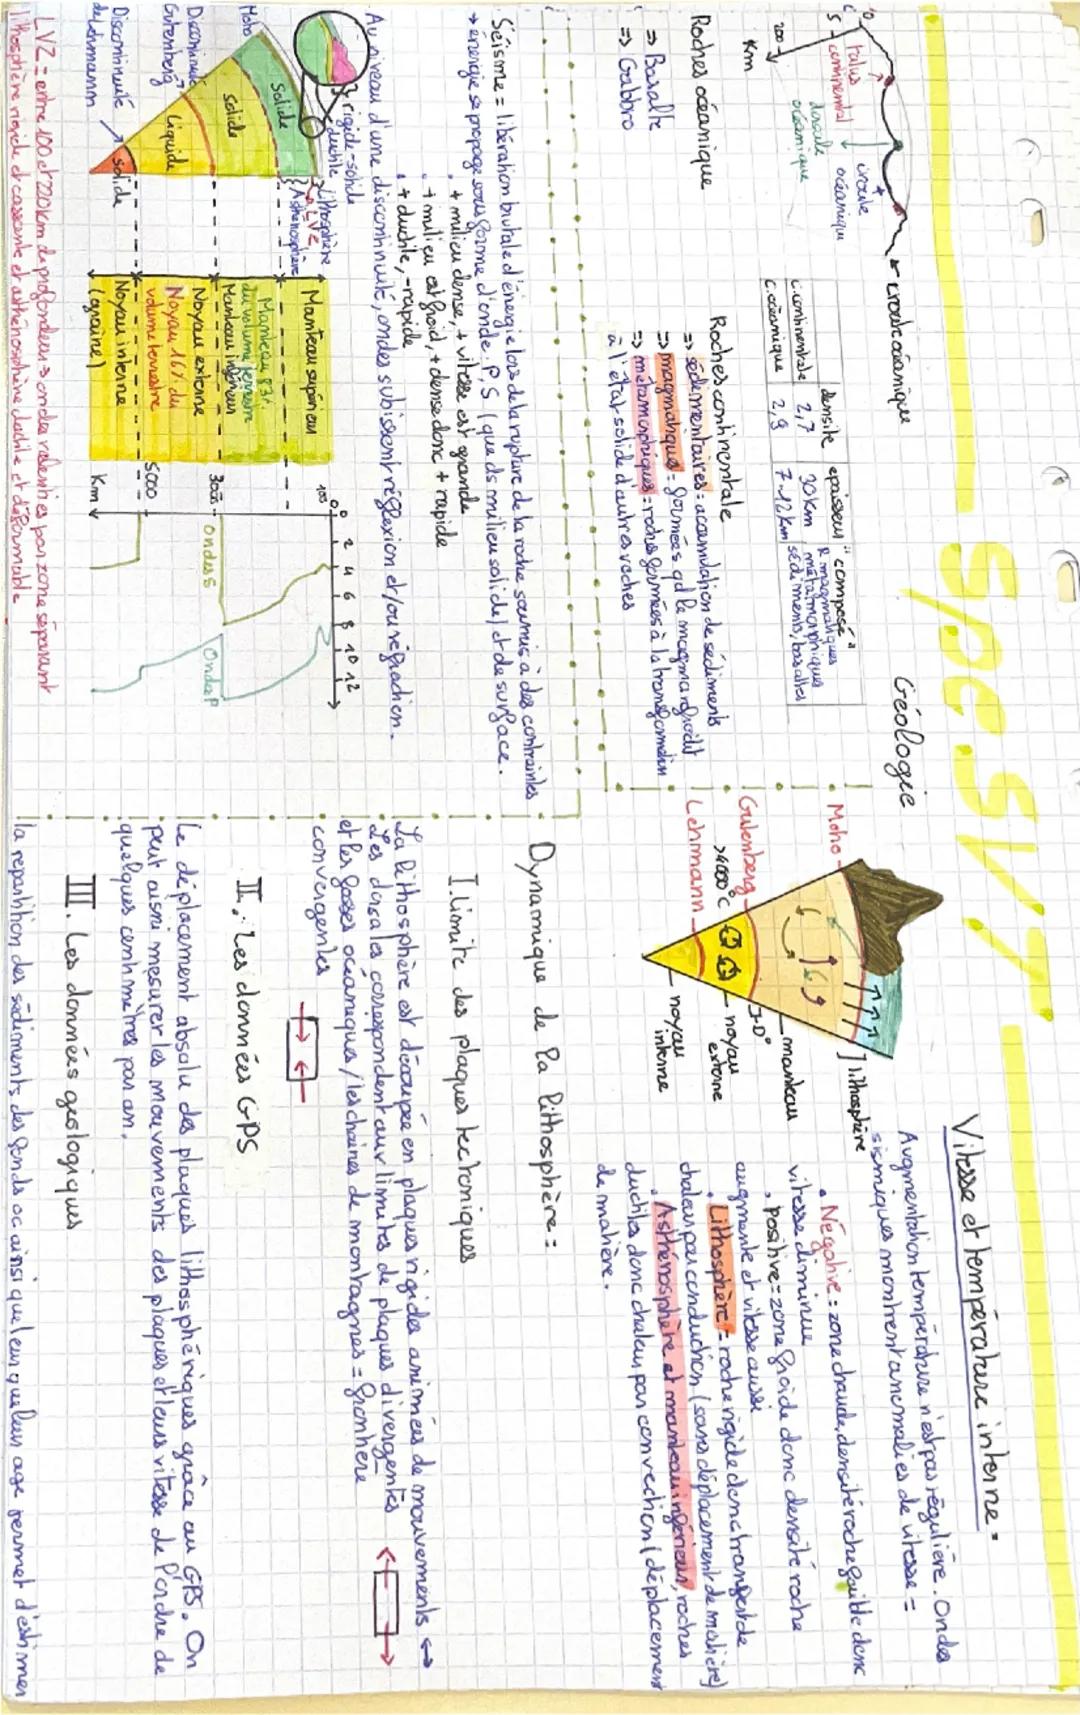 Spé SVT
Géologie
croûte océanique
talus continental
croûte océanique
200
Km
densité épaisseur "composé"
c.continentale 2,7 30Km R.magmatiques métamorphiques
c.océanique 2,9 7-12km sédiments, basaltes
Roches océanique
=> Basalte
=> Gabbro
Roches continentale
=> sédimentaires = accumulation de sédiments
=> magmatiques = formées qd le magma refroidit
=> métamorphiques = roches formées à la transformation
à l'état solide d'autres roches
. Séisme = libération brutale d'énergie lors de la rupture de la roche soumis à des contraintes
→ énergie se propage sous forme d'onde : P, S (que ds milieu solide) et de surface.
. + milieu dense, + vitesse est grande
. + milieu est froid, + dense donc + rapide
. + ductile, - rapide
. Au niveau d'une discontinuité, ondes subissent réflexion et/ou réfraction.
rigide-solide
ductile
Lithosphère
LVZ
Asthénosphère
Moho
Solide
Solide
Discontinuité Gutenberg
Liquide
Discontinuité de Lehmann
Solide
Manteau supérieur
Manteau 83% du volume terrestre
Manteau inférieur
Noyau externe
Noyau 16% du volume terrestre
Noyau interne
(graine)
0 2 4 6 8 10 12
100
5000
Km
ondes S
Ondes P
LVZ = entre 100 et 220km de profondeur → ondes ralenties par zone séparant
lithosphère rigide et cassante et asthénosphère ductile et déformable
Moho
Gutenberg
>4000°c
Lehmann
] lithosphère
manteau
noyau externe
noyau interne
Vitesse et température interne =
Augmentation température n'est pas régulière. Ondes
sismiques montrent anomalies de vitesse =
. Négative = zone chaude, densité roche faible donc
vitesse diminue
. positive = zone froide donc densité roche
augmente et vitesse aussi
. Lithosphère = roche rigide donc transfert de
chaleur par conduction (sans déplacement de matière)
. Asthénosphère et manteau inférieur, roches
ductiles donc chaleur par convection (déplacement
de matière.
Dynamique de la lithosphère =
I. Limite des plaques tectoniques
La lithosphère est découpée en plaques rigides animées de mouvements ↔
Les dorsales correspondent aux limites de plaques divergentes
et les fosses océaniques / les chaînes de montagnes = frontière
convergentes
II. Les données GPS
Le déplacement absolu des plaques lithosphériques grâce au GPS. On
peut aisni mesurer les mouvements des plaques et leurs vitesse de l'ordre de
quelques centimètres par an.
III. Les données géologiques
la répartition des sédiments des fonds oc ainsi que leur age permet d'estimer